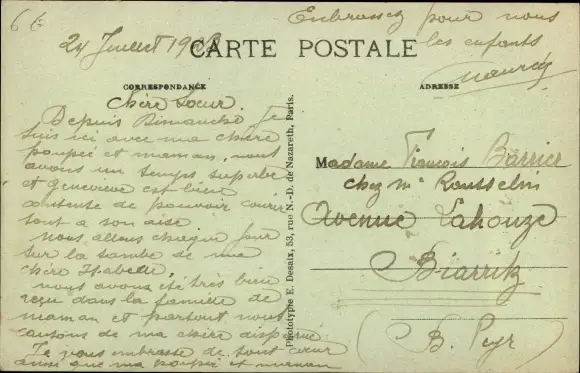 66
Embrassez pour nous
les enfants
24 Juillet
CARTE POSTALE
CORRESPONDANCE
ADRESSE
Chère Soeur.
Depuis Dimanche Je
suis ici avec ma chère
poupée et maman, nous
avons un temps superbe
et Geneviève est bien
contente de pouvoir courir
tout a son aise
nous allons chaque jour
sur la tombe de ma
chère Isabelle,
nous avons été très bien
reçu dans la famille de
maman et partout nous
causons de ma chère disparue
Je vous embrasse de tout coeur
ainsi que ma poupée et maman
Phototypie E. Desaix, 53, rue N.-D. de Nazareth, Paris.
Madame François Barrier
chez Mr Rousselin
Avenue Lahouze
Biarritz
(B. Pyr)